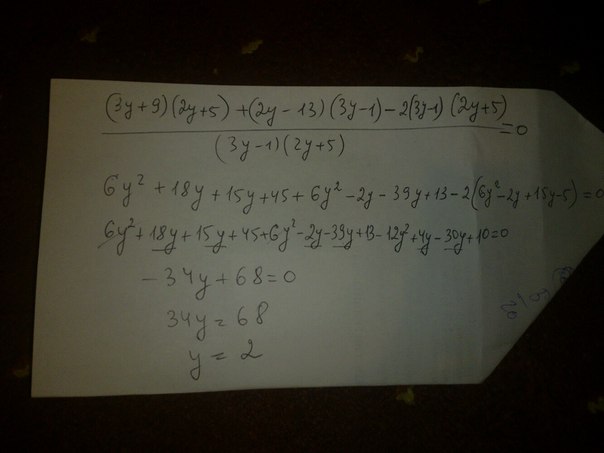 (3y+9)(2y+5) +(2y-13)(3y-1)-2(3y-1)(2y+5)
=0
(3y-1)(2y+5)
6y² +18y+15y+45+6y²-2y-39y+13-2(6y²-2y+15y-5)=0
6y²+18y+15y+45+6y²-2y-39y+13-12y²+4y-30y+10=0
-34y+68=0
34y=68
y= 2